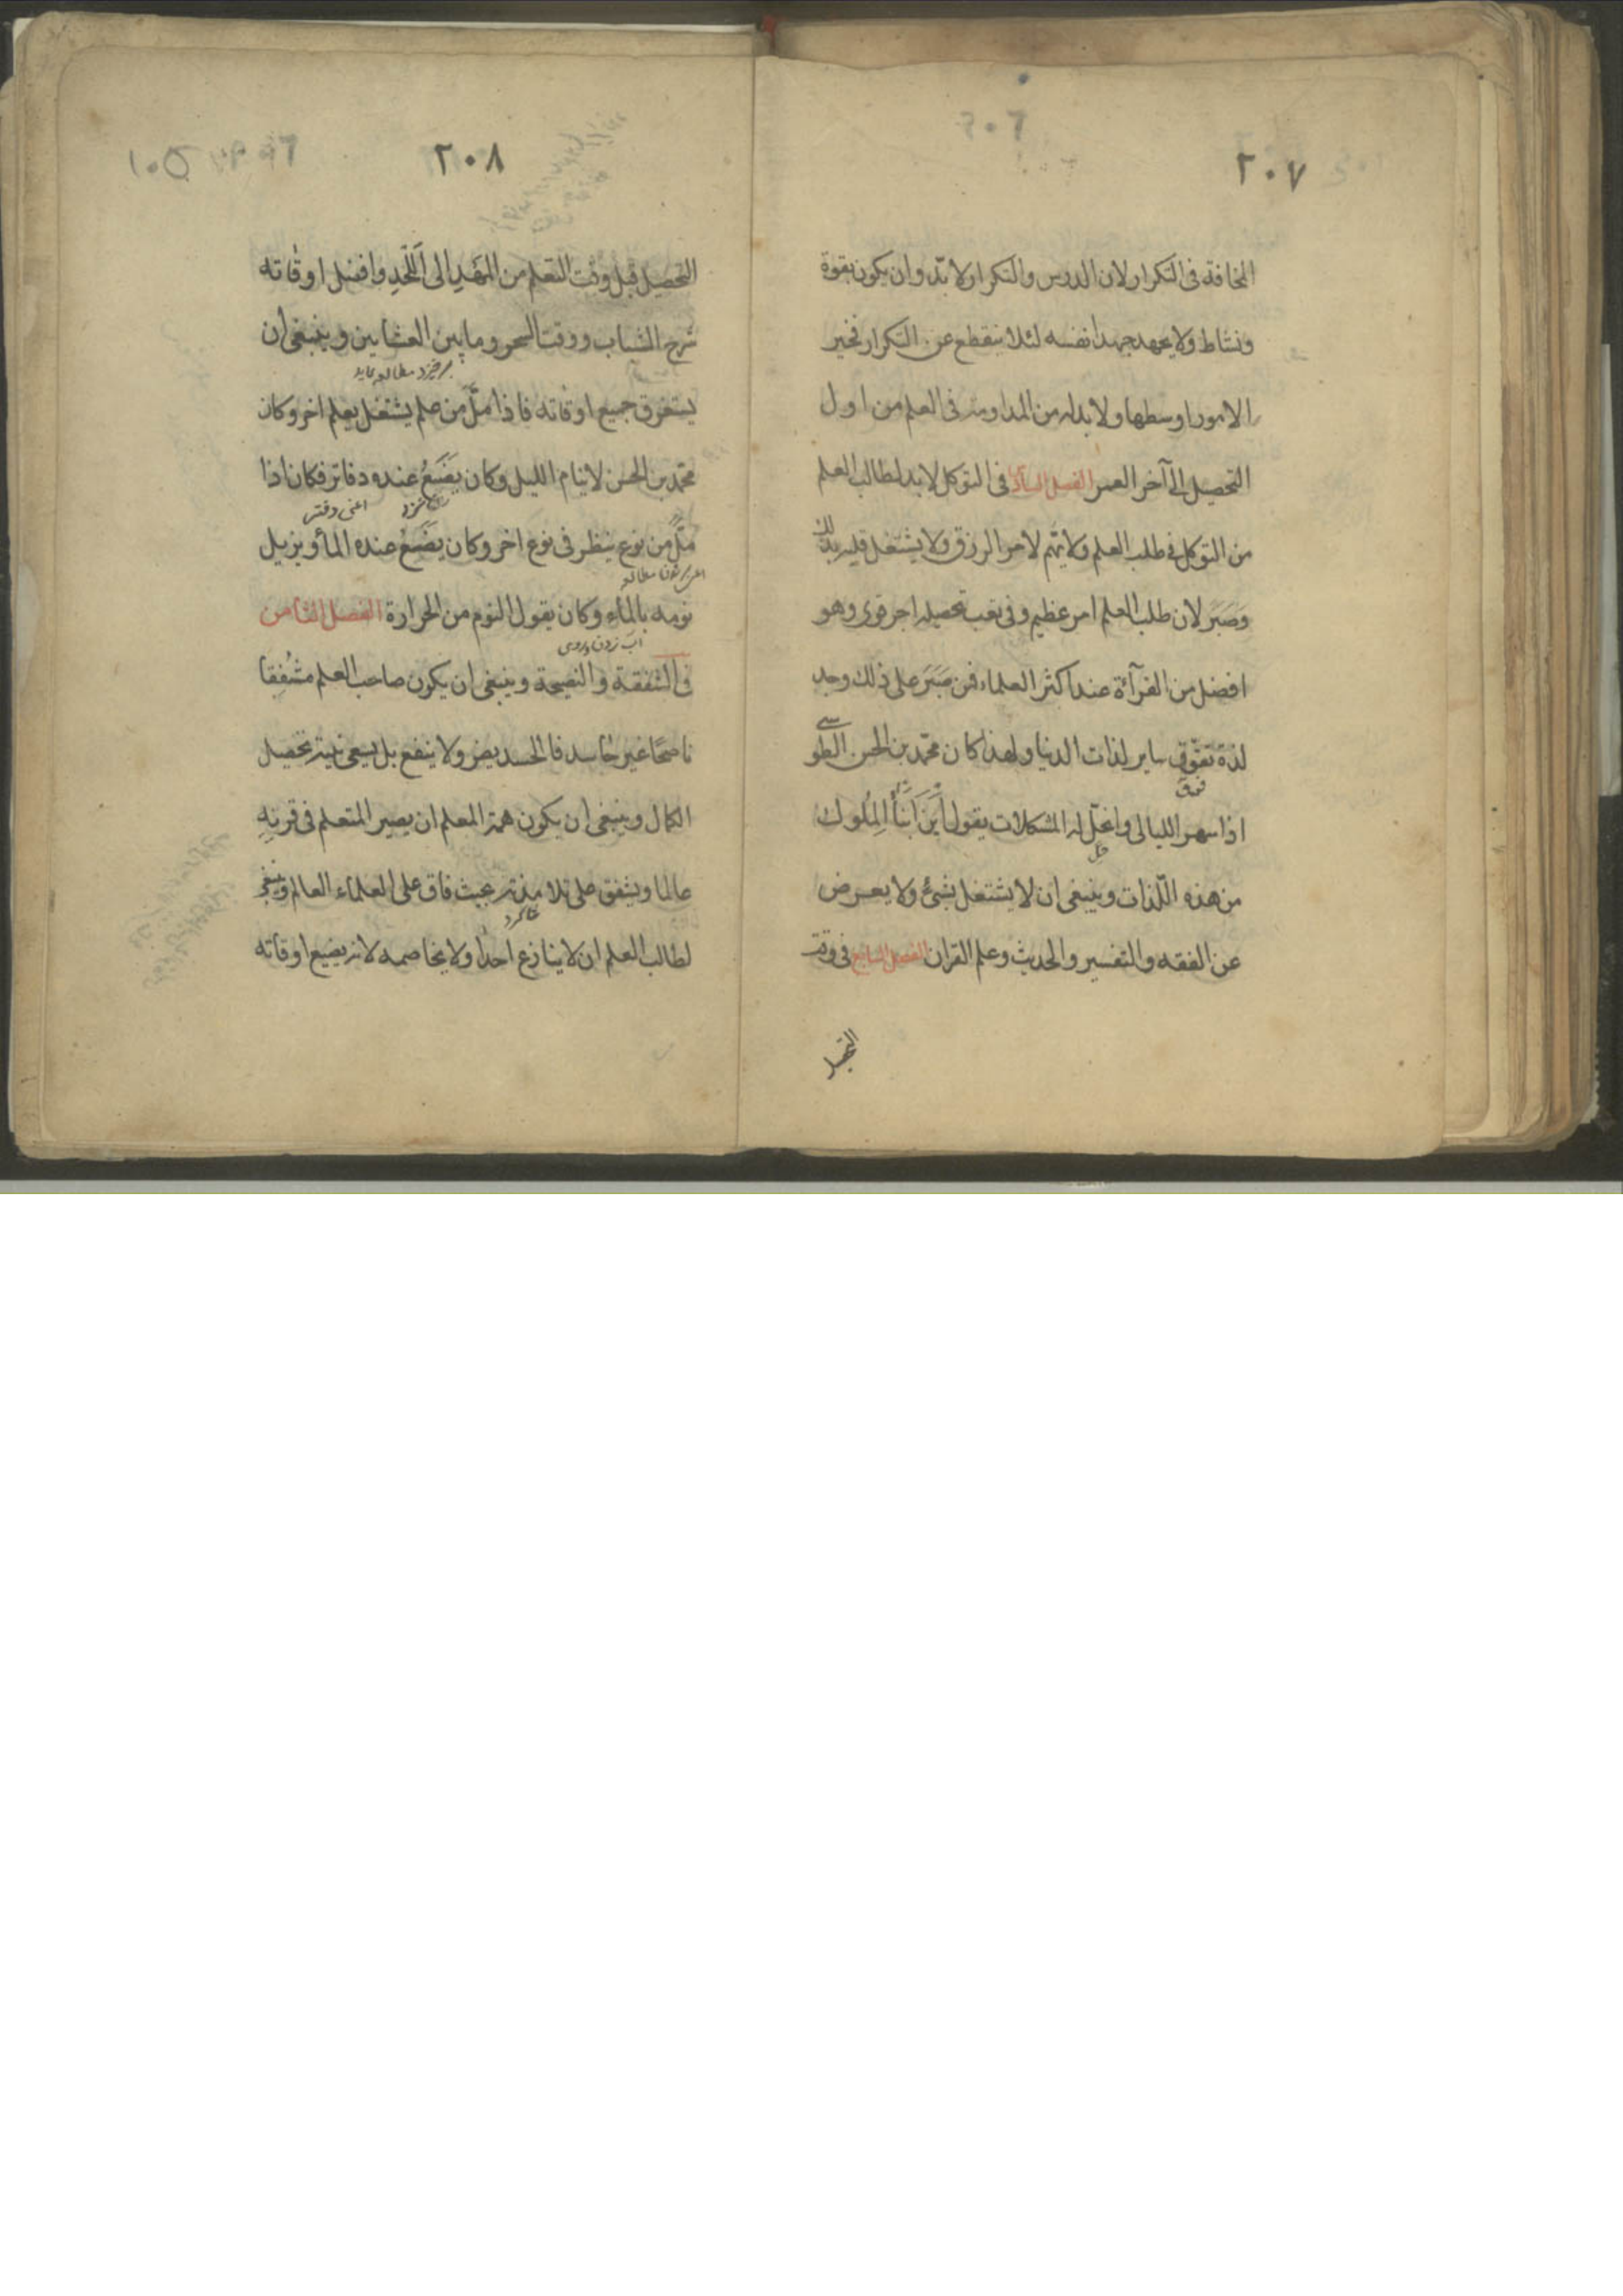 ٢٠٧
المخافة فى التكرار لان الدروس والتكرار ولا بدّ وان يكون بقوة
ونشاط ولا يجهد جهدا نفسه لئلا ينقطع عن التكرار فخير
الامور اوسطها ولا بدله من المداومة فى العلم من اول
التحصيل الى آخر العمر الفصل السادس فى التوكل لا بد لطالب العلم
من التوكل فى طلب العلم ولا يهتم لامر الرزق ولا يشتغل قلبه بذلك
وصَبَرَ لان طلب العلم امر عظيم وفى تعب تحصيله اجر قوى وهو
افضل من القرآءة عند اكثر العلماء فمن صَبَرَ على ذلك وجد
لذة تفوّق ساير لذات الدنيا ولهذا كان محمّد بن الحسن الطوسى
فوق
اذا سهر الليالى وانحّل له المشكلات يقول اَيْنَ اَبنَاُ المِلُوك
حل
من هذه اللّذات وينبغى ان لا يشتغل بشئ ولا يعرض
عن الفقه والتفسير والحديث وعلم القران الفصل السابع فى وقت
التحصيل
٢٠٨
١٠٥
التحصيل قيل وقت التعلم من المَهدِ الى اللَّحدِ وافضل اوقاته
شرح الشباب ووقت السحر وما بين العشايين وينبغى ان
يستغرق جميع اوقاته فاذا ملَّ من علم يشتغل بعلم اخر وكان
محمّد بن الحسن لا ينام الليل وكان يَضَعُ عنده دفاتر فكان اذا
اعنى دفتر
ملَّ من نوع ينظر فى نوع اخر وكان يَضَعُ عنده المأ ويزيل
نومه بالماء وكان يقول النوم من الحرارة الفصل الثامن
آب زدن بروى
فى الشفقة والنصيحة وينبغى ان يكون صاحب العلم مشُفِقا
ناصحًا غير حاسد فالحسد يضر ولا ينفع بل يسعى نية تحصيل
الكمال وينبغى ان يكون همة المعلم ان يصير المتعلم فى قرنِهِ
عالما ويشفق على تلامذته بحيث فاق على العلماء العالم وينبغى
شاكرد
لطالب العلم ان لا ينازع احدا ولا يخاصمه لانه يضيع اوقاته